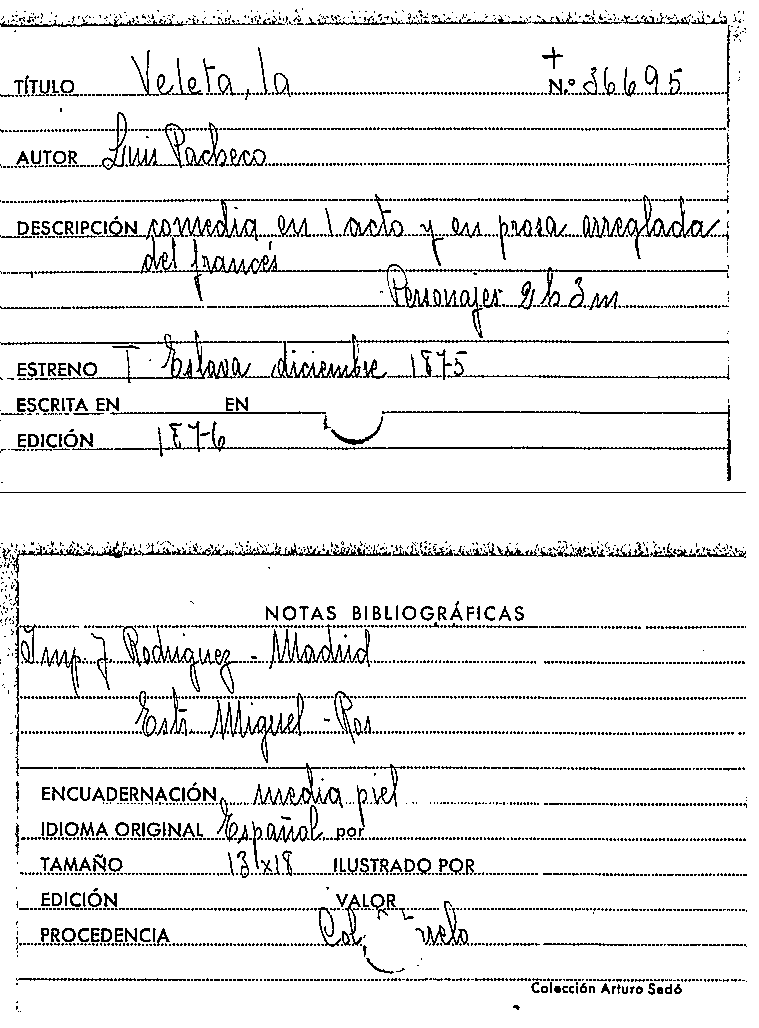 TÍTULO Veleta, la
+
N.º 36695
AUTOR Luis Pacheco
DESCRIPCIÓN comedia en 1 acto y en prosa arreglada
del francés
Personajes 2 h 3 m
ESTRENO T. Eslava diciembre 1875
ESCRITA EN EN
EDICIÓN 1876
NOTAS BIBLIOGRÁFICAS
Imp J Rodriguez - Madrid
Estr. Miguel - Ros
ENCUADERNACIÓN media piel
IDIOMA ORIGINAL Español por
TAMAÑO 13x18 ILUSTRADO POR
EDICIÓN VALOR
PROCEDENCIA Col.
Colección Arturo Sedó